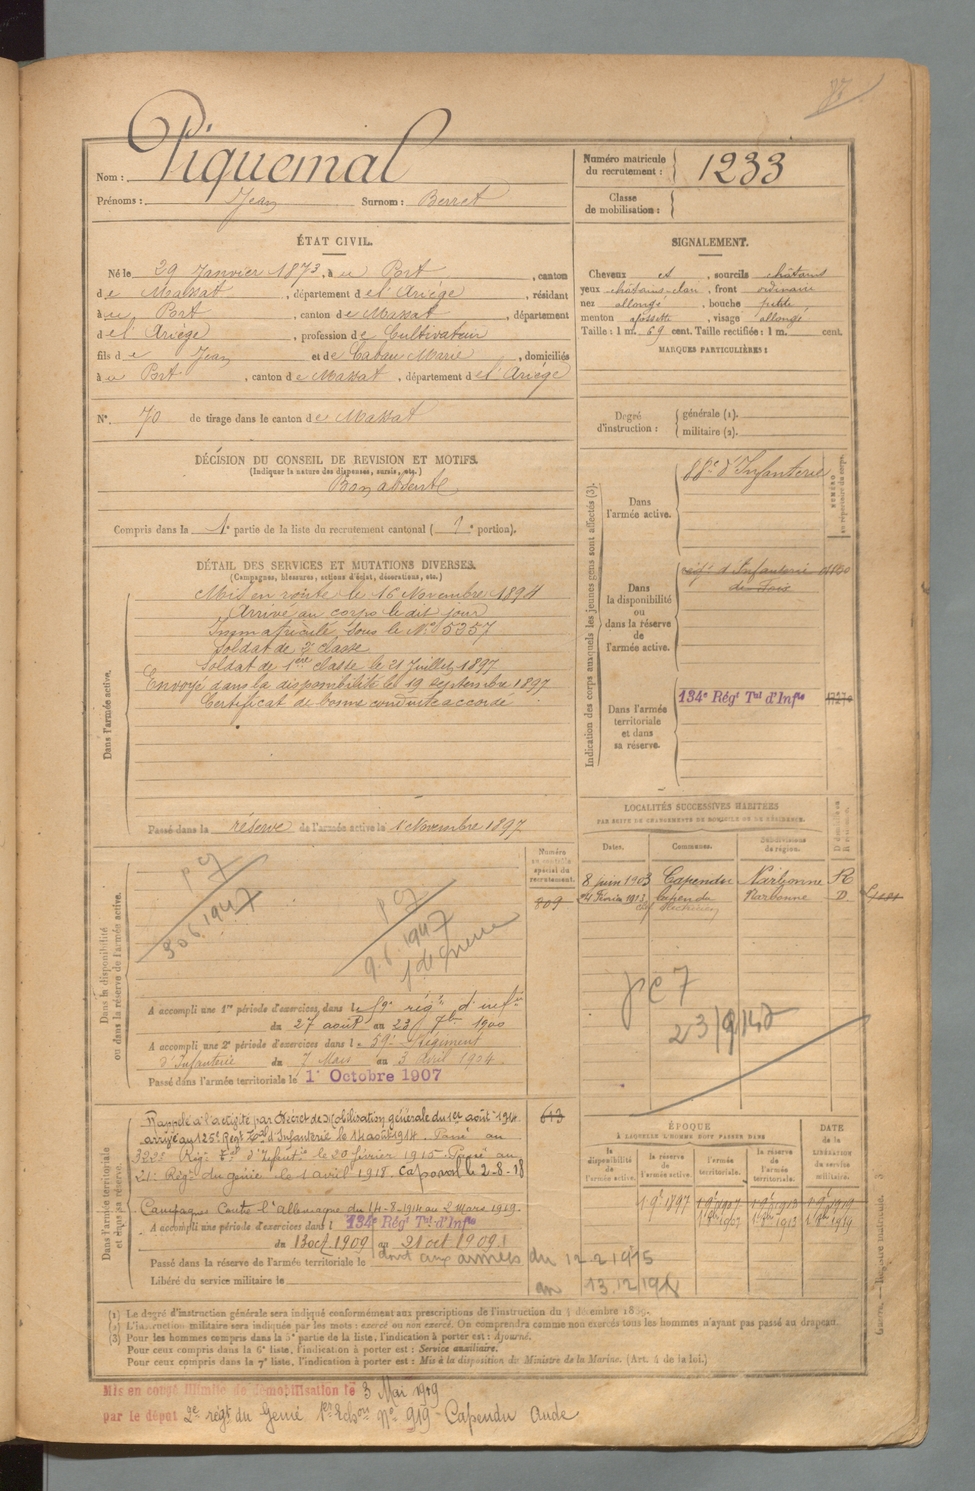 Piquemal
Nom :
Prénoms : Jean Surnom : Berret
Numéro matricule
du recrutement : 1233
Classe
de mobilisation :
ÉTAT CIVIL.
Né le 29 Janvier 1873, à u Port, canton
de Massat, département de l'Ariège, résidant
à u Port, canton de Massat, département
de l'Ariège, profession de Cultivateur
fils de Jean et de Caban Marie, domiciliés
à u Port, canton de Massat, département de l'Ariège
N° 70 de tirage dans le canton de Massat
SIGNALEMENT.
Cheveux et, sourcils châtains
yeux châtains-clair, front ordinaire
nez allongé, bouche petite
menton à fossette, visage allongé
Taille : 1 m. 69 cent. Taille rectifiée : 1 m. cent.
MARQUES PARTICULIÈRES :
Degré
d'instruction :
générale (1).
militaire (2).
DÉCISION DU CONSEIL DE REVISION ET MOTIFS.
(Indiquer la nature des dispenses, sursis, etc.)
Bon absent
Compris dans la 1e partie de la liste du recrutement cantonal ( e portion).
DÉTAIL DES SERVICES ET MUTATIONS DIVERSES.
(Campagnes, blessures, actions d'éclat, décorations, etc.)
Dans l'armée active.
Mis en route le 16 Novembre 1894
Arrivé au corps le dit jour
Immatriculé sous le N° 5357
Soldat de 2e classe
Soldat de 1ère classe le 21 Juillet 1897
Envoyé dans la disponibilité le 19 septembre 1897
Certificat de bonne conduite accordé
Passé dans la réserve de l'armée active le 1 Novembre 1897
Indication des corps auxquels les jeunes gens sont affectés (3).
Dans
l'armée active.
88e d'Infanterie
NUMÉRO
au répertoire du corps.
Dans
la disponibilité
ou
dans la réserve
de
l'armée active.
régt d'Infanterie
de Foix
Dans l'armée
territoriale
et dans
sa réserve.
134e Régt Tal d'Infie
LOCALITÉS SUCCESSIVES HABITÉES
PAR SUITE DE CHANGEMENTS DE DOMICILE OU DE RÉSIDENCE.
Dates. Communes. Subdivisions
de région.
8 juin 1903 Capendu Narbonne R
Février 1913 Capendu Narbonne D
Dans la disponibilité
ou dans la réserve de l'armée active.
Numéro
au contrôle
spécial du
recrutement.
809
30 6 1947
9.6.1947
23/9/47
A accompli une 1re période d'exercices, dans le 59e régt d'infie
du 27 août au 23 7bre 1900
A accompli une 2e période d'exercices dans le 59e régiment
d'Infanterie du 7 Mars au 3 Avril 1904
Passé dans l'armée territoriale le 1er Octobre 1907
Dans l'armée territoriale
et dans sa réserve.
Rappelé à l'activité par Décret de Mobilisation générale du 1er août 1914
arrivé au 125e Régt Tal d'Infanterie le 14 août 1914. Passé au
322e Rigt Tal d'Infantie le 20 février 1915. Passé au
21e Régt du génie le 1 avril 1918. Caporal le 2-8-18
Campagne Contre l'Allemagne du 14-8-1914 au 2 Mars 1919.
A accompli une période d'exercices dans le 134e Régt Tal d'Infie
du 13 oct. 1909 au 21 oct 1909
Passé dans la réserve de l'armée territoriale le
dont aux armées du 12-2-1915
au 13.12/1918
Libéré du service militaire le
613
ÉPOQUE
À LAQUELLE L'HOMME DOIT PASSER DANS
la
disponibilité
de
l'armée active.
la réserve
de
l'armée active.
l'armée
territoriale.
la réserve
de
l'armée
territoriale.
DATE
de la
LIBÉRATION
du service
militaire.
(1) Le degré d'instruction générale sera indiqué conformément aux prescriptions de l'instruction du 4 décembre 1889.
(2) L'instruction militaire sera indiquée par les mots : exercé ou non exercé. On comprendra comme non exercés tous les hommes n'ayant pas passé au drapeau.
(3) Pour les hommes compris dans la 5e partie de la liste, l'indication à porter est : Ajourné.
Pour ceux compris dans la 6e liste, l'indication à porter est : Service auxiliaire.
Pour ceux compris dans la 7e liste, l'indication à porter est : Mis à la disposition du Ministre de la Marine. (Art. 4 de la loi.)
Mis en congé illimité de démobilisation le 3 Mai 1919
par le dépot 2e régt du Génie 1er Echon N° 919 - Capendu Aude